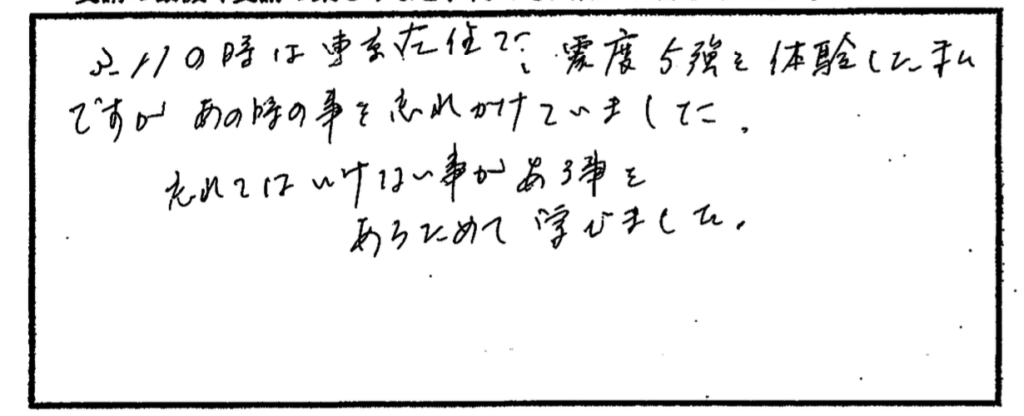 3.11の時は東京在住で、震度5強を体験した私
ですが あの時の事を忘れかけていました。
忘れてはいけない事がある事を
あらためて学びました。